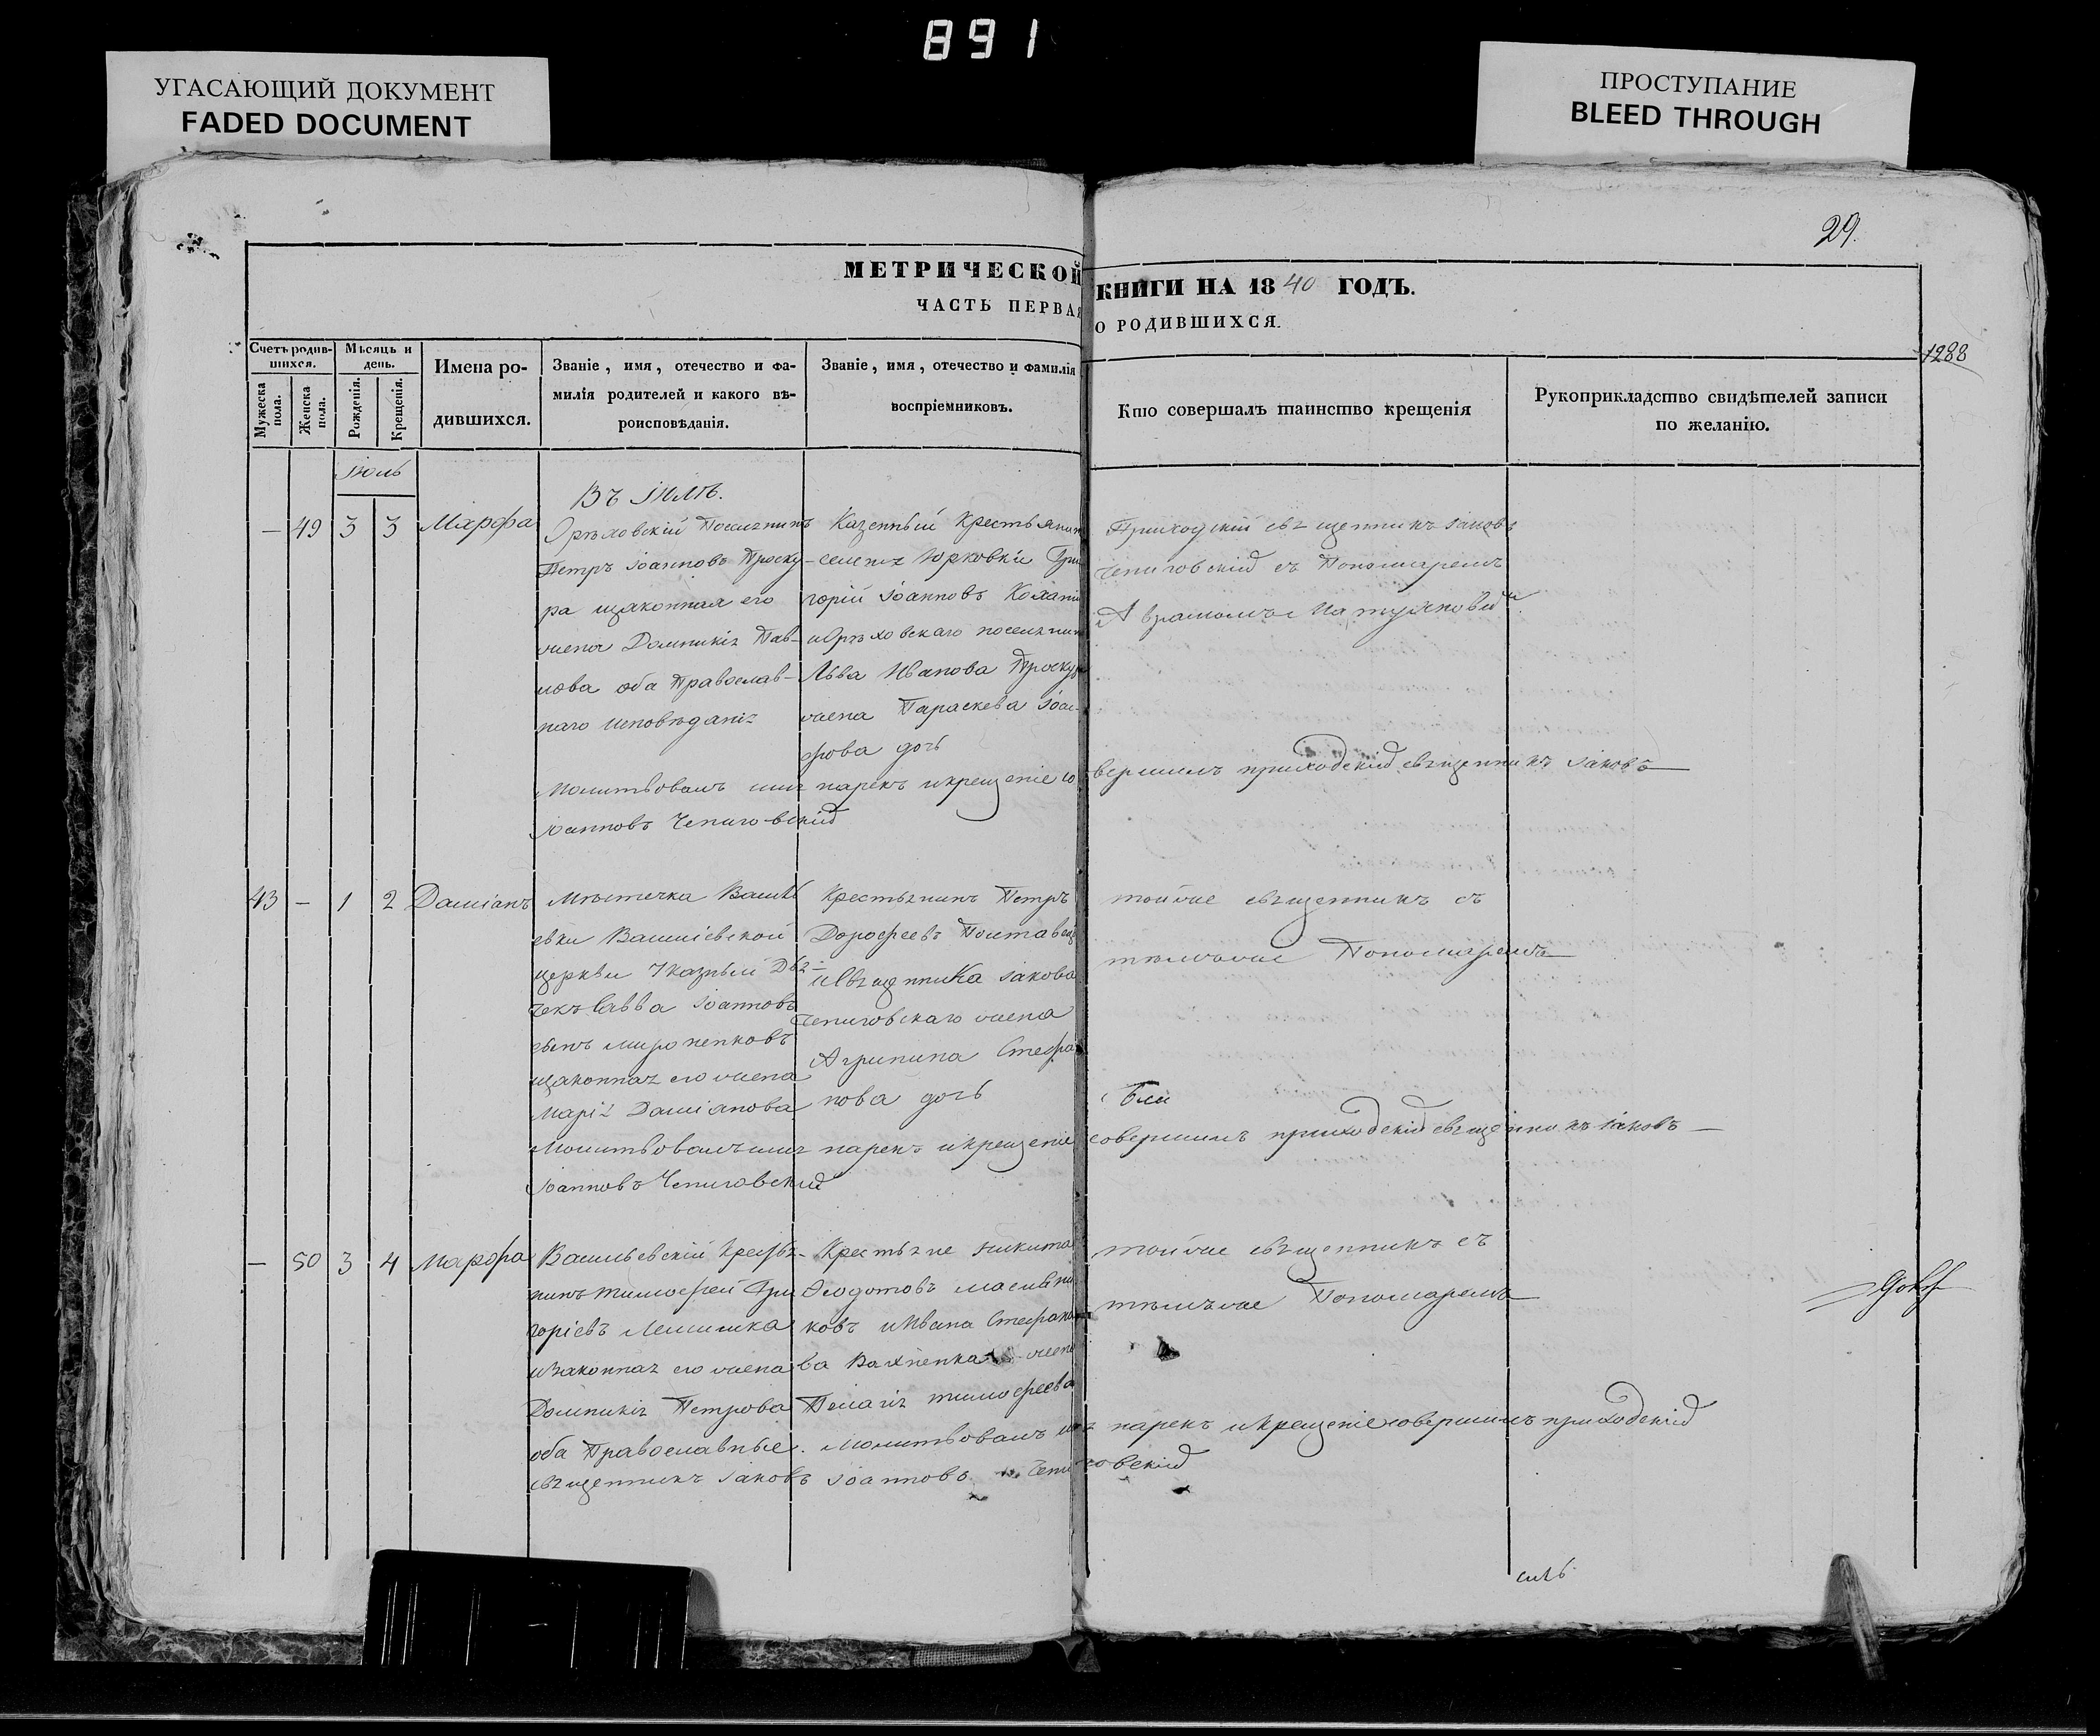 891
УГАСАЮЩИЙ ДОКУМЕНТ
FADED DOCUMENT
ПРОСТУПАНИЕ
BLEED THROUGH
29.
МЕТРИЧЕСКОЙ КНИГИ НА 1840 ГОДЪ.
ЧАСТЬ ПЕРВАЯ О РОДИВШИХСЯ.
1288
Счетъ родив-
шихся.
Мужеска пола.
Женска пола.
Мѣсяцъ и
день.
Рожденія.
Крещенія.
Имена ро-
дившихся.
Званіе, имя, отечество и фа-
милія родителей и какого вѣ-
роисповѣданія.
Званіе, имя, отечество и фамилія
воспріемниковъ.
Кто совершалъ таинство крещенія
Рукоприкладство свидѣтелей записи
по желанію.
Іюль
Въ Іюлѣ.
— 49 3 3 Марфа
Орѣховскій Поселянинъ
Петръ Іоанновъ Проску-
ра изаконная его
жена Домникія Пав-
лова оба Православ-
наго исповѣданія
Казенный Крестьянинъ
селенія Юрковки Гри
горій Іоанновъ
иОрѣховскаго поселянина
Льва Иванова Проскур
жена Параскева
дочь
Приходскій священникъ Іаковъ
Чепиговскій съ Пономаремъ
Аврамомъ
Молитвовалъ имя нарекъ икрещеніе совершилъ приходскій священникъ Іаковъ
Іоанновъ Чепиговскій
43 — 1 2 Даміанъ
Мѣстечка Василь
евки Васильевской
церкви Указный Дья
чекъ Савва Іоанновъ
сынъ Мироненковъ
изаконная его жена
Марія Даміанова
Крестьянинъ Петръ
Дорофеевъ Полтавец
иСвященника Іакова
Чепиговскаго жена
Агрипина Стефа
нова дочь
тойже священникъ съ
тѣмъже Пономаремъ
Молитвовалъ имя нарекъ икрещеніе совершилъ приходскій священникъ Іаковъ
Іоанновъ Чепиговскій
— 50 3 4 Марфа
Васильевскій Крестья-
нинъ Тимофей Гри
горіевъ
изаконная его жена
Домникія Петрова
оба Православные.
Крестьяне Никита
Ѳеодотовъ
ковъ иИвана Стефано
ва жена
Пелагія Тимофеева
тойже священникъ съ
тѣмъже Пономаремъ
Молитвовалъ имя нарекъ икрещеніе совершилъ приходскій
священникъ Іаковъ Іоанновъ Чепиговскій